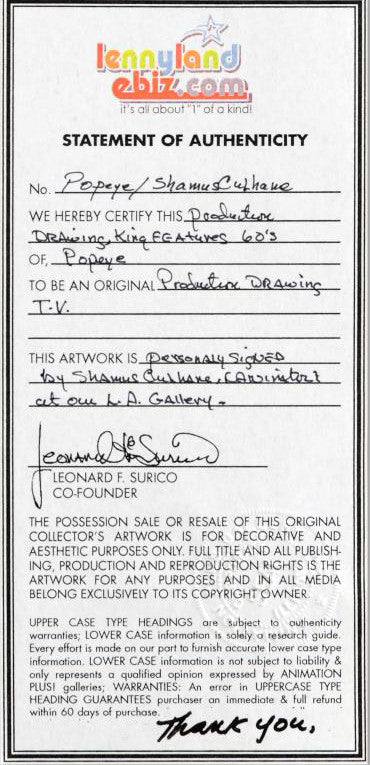 lennyland
ebiz.com
it's all about "1" of a kind!
STATEMENT OF AUTHENTICITY
No. Popeye/Shamus Culhane
WE HEREBY CERTIFY THIS Production
DRAwing, King FEAtures 60's
OF, Popeye
TO BE AN ORIGINAL Production DRAwing
T.V.
THIS ARTWORK IS personaly SignED
by Shamus Culhane,
at our L.A. GAllery.
LEONARD F. SURICO
CO-FOUNDER
THE POSSESSION SALE OR RESALE OF THIS ORIGINAL
COLLECTOR'S ARTWORK IS FOR DECORATIVE AND
AESTHETIC PURPOSES ONLY. FULL TITLE AND ALL PUBLISH-
ING, PRODUCTION AND REPRODUCTION RIGHTS IS THE
ARTWORK FOR ANY PURPOSES AND IN ALL MEDIA
BELONG EXCLUSIVELY TO ITS COPYRIGHT OWNER.
UPPER CASE TYPE HEADINGS are subject to authenticity
warranties; LOWER CASE information is solely a research guide.
Every effort is made on our part to furnish accurate lower case type
information. LOWER CASE information is not subject to liability &
only represents a qualified opinion expressed by ANIMATION
PLUS! galleries; WARRANTIES: An error in UPPERCASE TYPE
HEADING GUARANTEES purchaser an immediate & full refund
within 60 days of purchase.
Thank you.